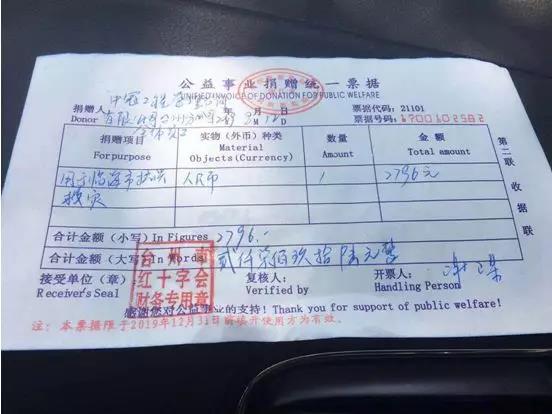 公益事业捐赠统一票据
UNIFIED INVOICE OF DONATION FOR PUBLIC WELFARE
捐赠人
Donor
年 月 日
Y M D
票据代码：21101
票据号码：
捐赠项目
For purpose
实物（外币）种类
Material
Objects(Currency)
数量
Amount
金额
Total amount
用于临海市抗洪
人民币
1
2796元
救灾
合计金额（小写）In Figures 2796.-
合计金额（大写）In Words 贰仟柒佰玖拾陆元整
接受单位（章）：
Receiver's Seal
复核人：
Verified by
开票人：
Handling Person
台州市
红十字会
财务专用章
感谢您对公益事业的支持！Thank you for support of public welfare!
注：本票据限于2019年12月31日前填开使用方为有效。
第二联 收据联